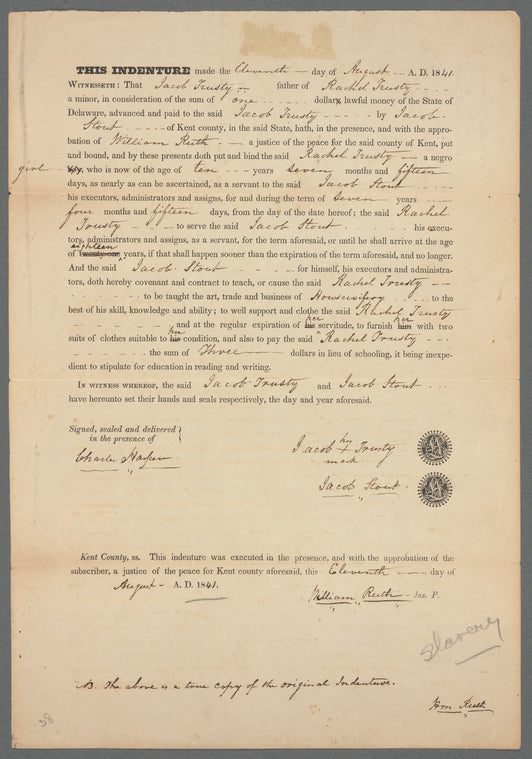 THIS INDENTURE made the Eleventh — day of August - - A. D. 1841.
WITNESSETH: That Jacob Trusty — father of Rachel Trusty - - - -
a minor, in consideration of the sum of one - - - - - dollars, lawful money of the State of
Delaware, advanced and paid to the said Jacob Trusty - - - - - by Jacob
Stout - - - - of Kent county, in the said State, hath, in the presence, and with the appro-
bation of William Ruth - - a justice of the peace for the said county of Kent, put
and bound, and by these presents doth put and bind the said Rachel Trusty — a negro
girl boy, who is now of the age of ten - - - years seven months and fifteen
days, as nearly as can be ascertained, as a servant to the said Jacob Stout - - - -
his executors, administrators and assigns, for and during the term of Seven - - years - - -
four months and fifteen days, from the day of the date hereof; the said Rachel
Trusty - - - - to serve the said Jacob Stout - - - - - his execu-
tors, administrators and assigns, as a servant, for the term aforesaid, or until he shall arrive at the age
eighteen
of twenty-one years, if that shall happen sooner than the expiration of the term aforesaid, and no longer.
And the said Jacob Stout - - - - for himself, his executors and administra-
tors, doth hereby covenant and contract to teach, or cause the said Rachel Trusty - -
- - - - - - - to be taught the art, trade and business of Housewifery - - - to the
best of his skill, knowledge and ability; to well support and clothe the said Rachel Trusty
her her
- - - - - - and at the regular expiration of his servitude, to furnish him with two
her
suits of clothes suitable to his condition, and also to pay the said Rachel Trusty - - -
- - - - - - the sum of Three — dollars in lieu of schooling, it being inexpe-
dient to stipulate for education in reading and writing.
IN WITNESS WHEREOF, the said Jacob Trusty and Jacob Stout - - -
have hereunto set their hands and seals respectively, the day and year aforesaid.
Signed, sealed and delivered
in the presence of
Charles Harper
his
Jacob + Trusty
mark
Jacob Stout.
Kent County, ss. This indenture was executed in the presence, and with the approbation of the
subscriber, a justice of the peace for Kent county aforesaid, this Eleventh — day of
August - A. D. 1841.
William Ruth - Jus. P.
Slavery
The above is a true copy of the original Indenture.
Wm Ruth